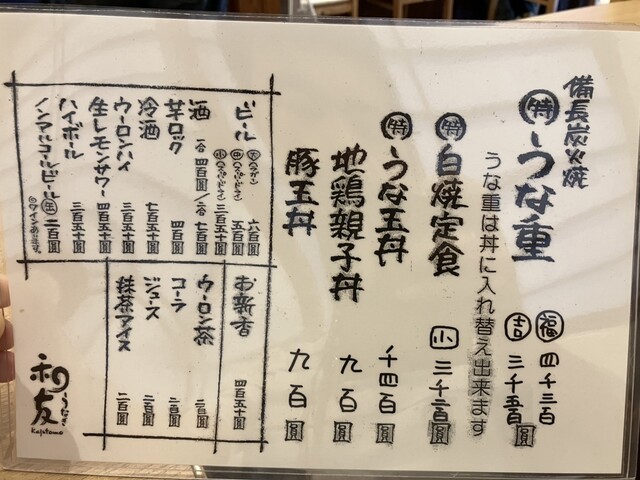 備長炭火焼
特 うな重
福 四千三百
吉 三千五百圓
うな重は丼に入れ替え出来ます
特 白焼定食 小 三千二百圓
特 うな玉丼 千四百圓
地鶏親子丼 九百圓
豚玉丼 九百圓
ビール
六百圓
五百圓
三百五十圓
酒 一合 四百圓/二合 七百圓
芋ロック 四百圓
冷酒 七百五十圓
ウーロンハイ 三百五十圓
生レモンサワー 四百五十圓
ハイボール 三百五十圓
ノンアルコールビール 二百圓
ワインあります。
お新香 四百五十圓
ウーロン茶 二百圓
コーラ 二百圓
ジュース 二百圓
抹茶アイス 二百圓
うなぎ
和友
Kazutomo